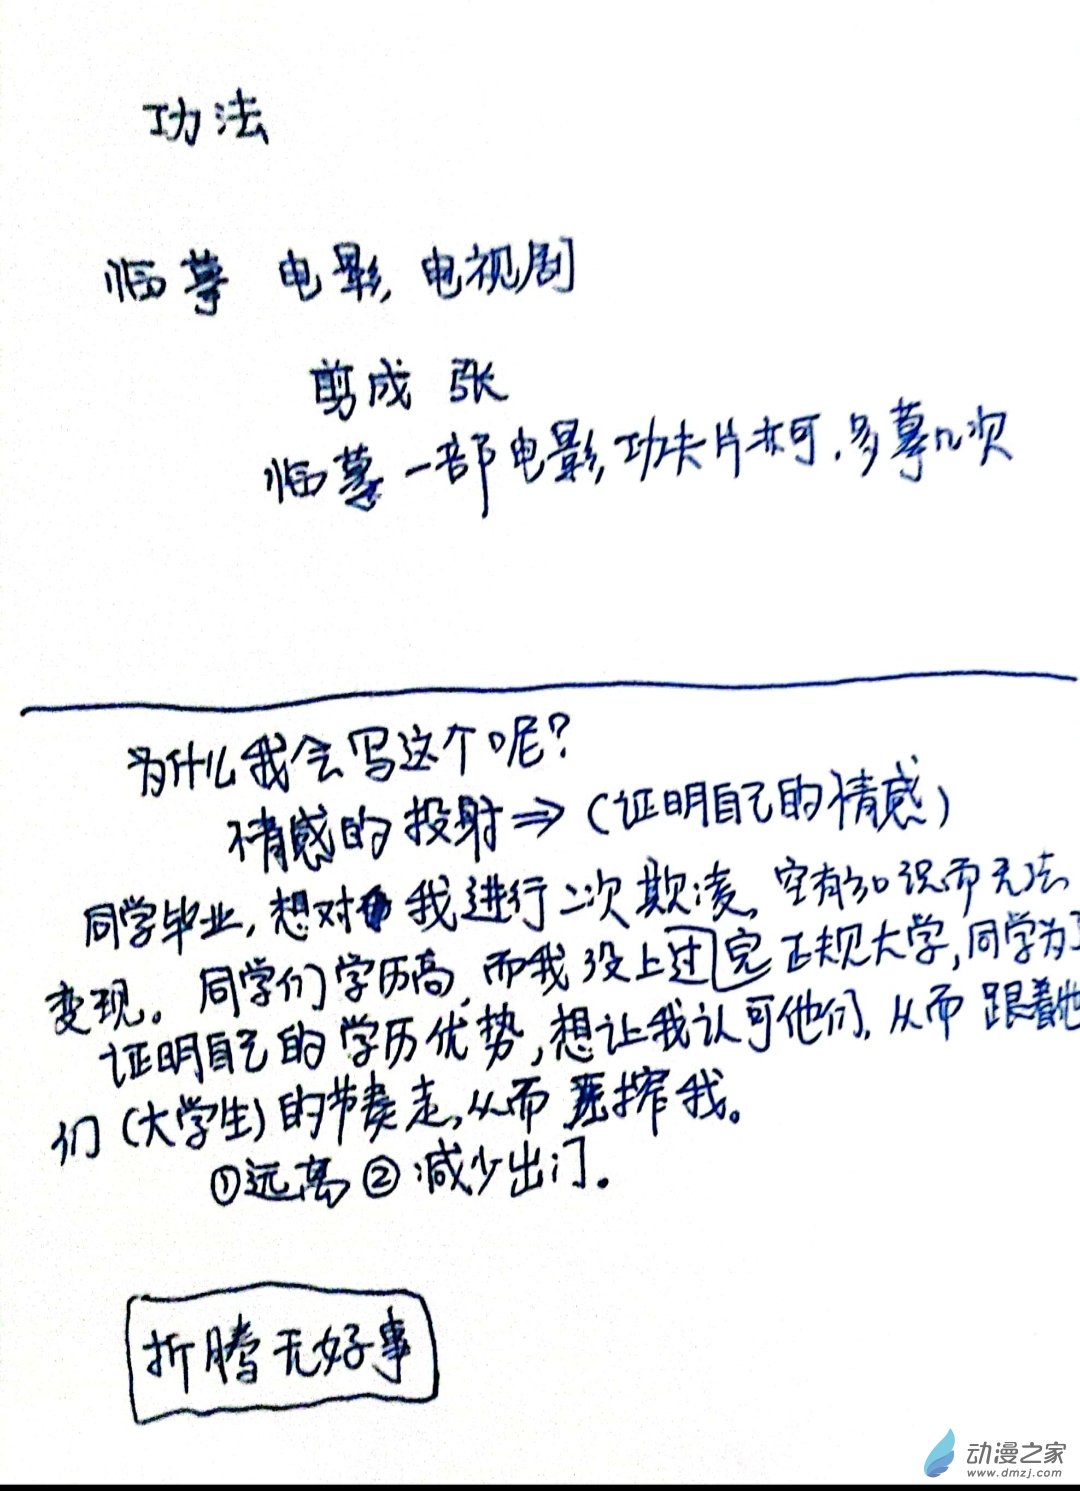 功法
临摹 电影,电视剧
剪成 张
临摹一部电影,功夫片亦可,多摹几次
为什么我会写这个呢?
情感的投射⇒(证明自己的情感)
同学毕业,想对我进行二次欺凌,空有知识而无法
变现。同学们学历高,而我没上过完正规大学,同学为了
证明自己的学历优势,想让我认可他们,从而跟着他
们(大学生)的节奏走,从而压榨我。
①远离②减少出门。
折腾无好事
动漫之家
www.dmzj.com